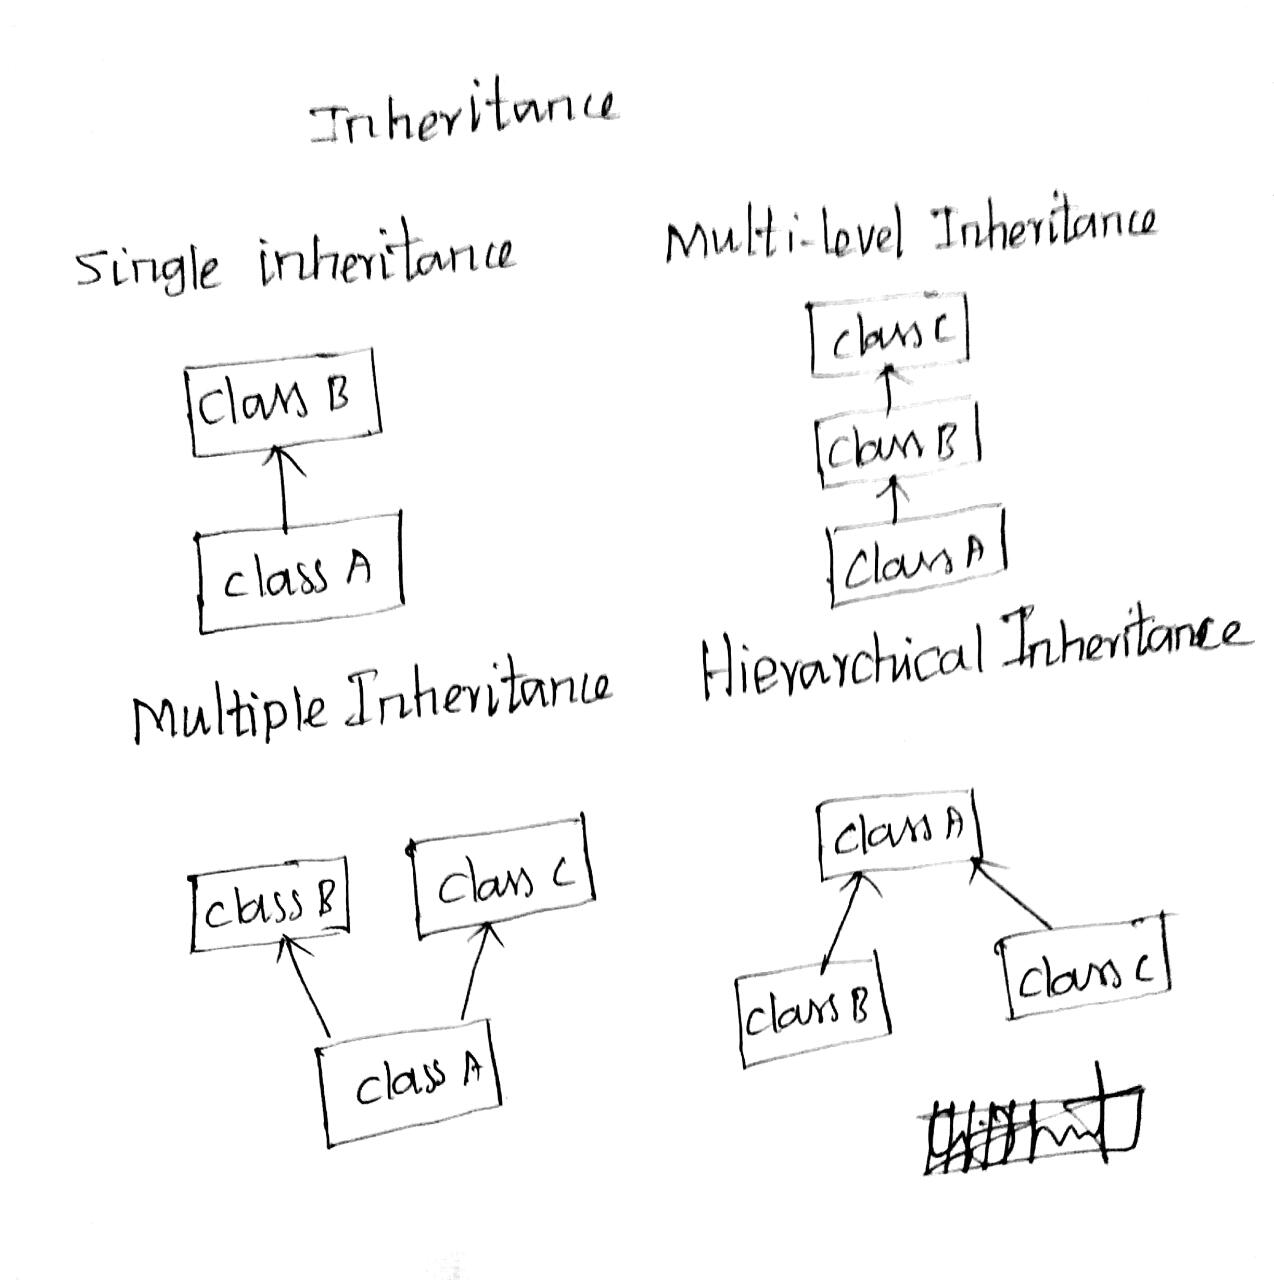 Inheritance
Single inheritance
class B
class A
Multi-level Inheritance
class C
class B
Class A
Multiple Inheritance
class B
class C
class A
Hierarchical Inheritance
class A
class B
class C